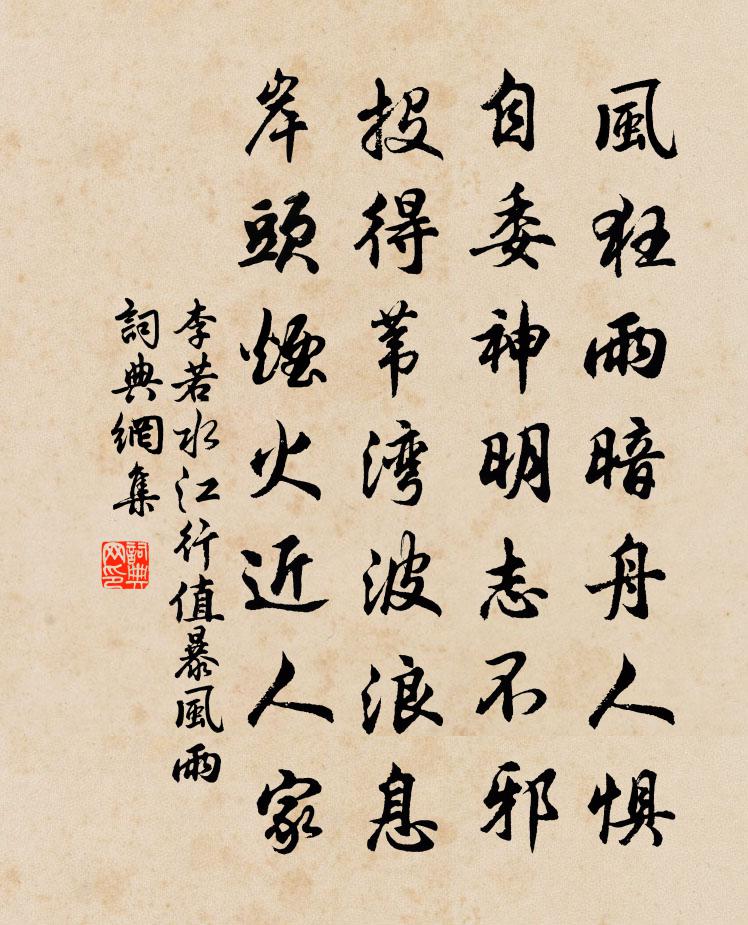 風狂雨暗舟人惧
自委神明志不邪
投得苇湾波浪息
岸頭煙火近人家
李若水江行值暴風雨
詞典網集
詞典网印